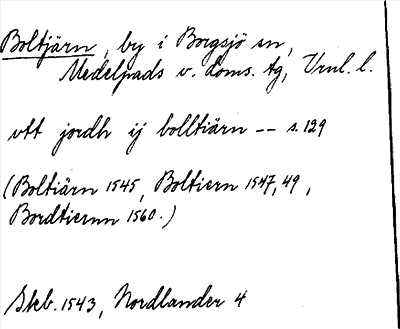 Boltjärn, by i Borgsjö sn,
Medelpads v. doms. tg, Vnl. l.
vtt jordh ij bolltiärn -- s. 129
(Boltiärn 1545, Boltiern 1547, 49,
Bordtiernn 1560.)
Skb. 1543, Nordlander 4